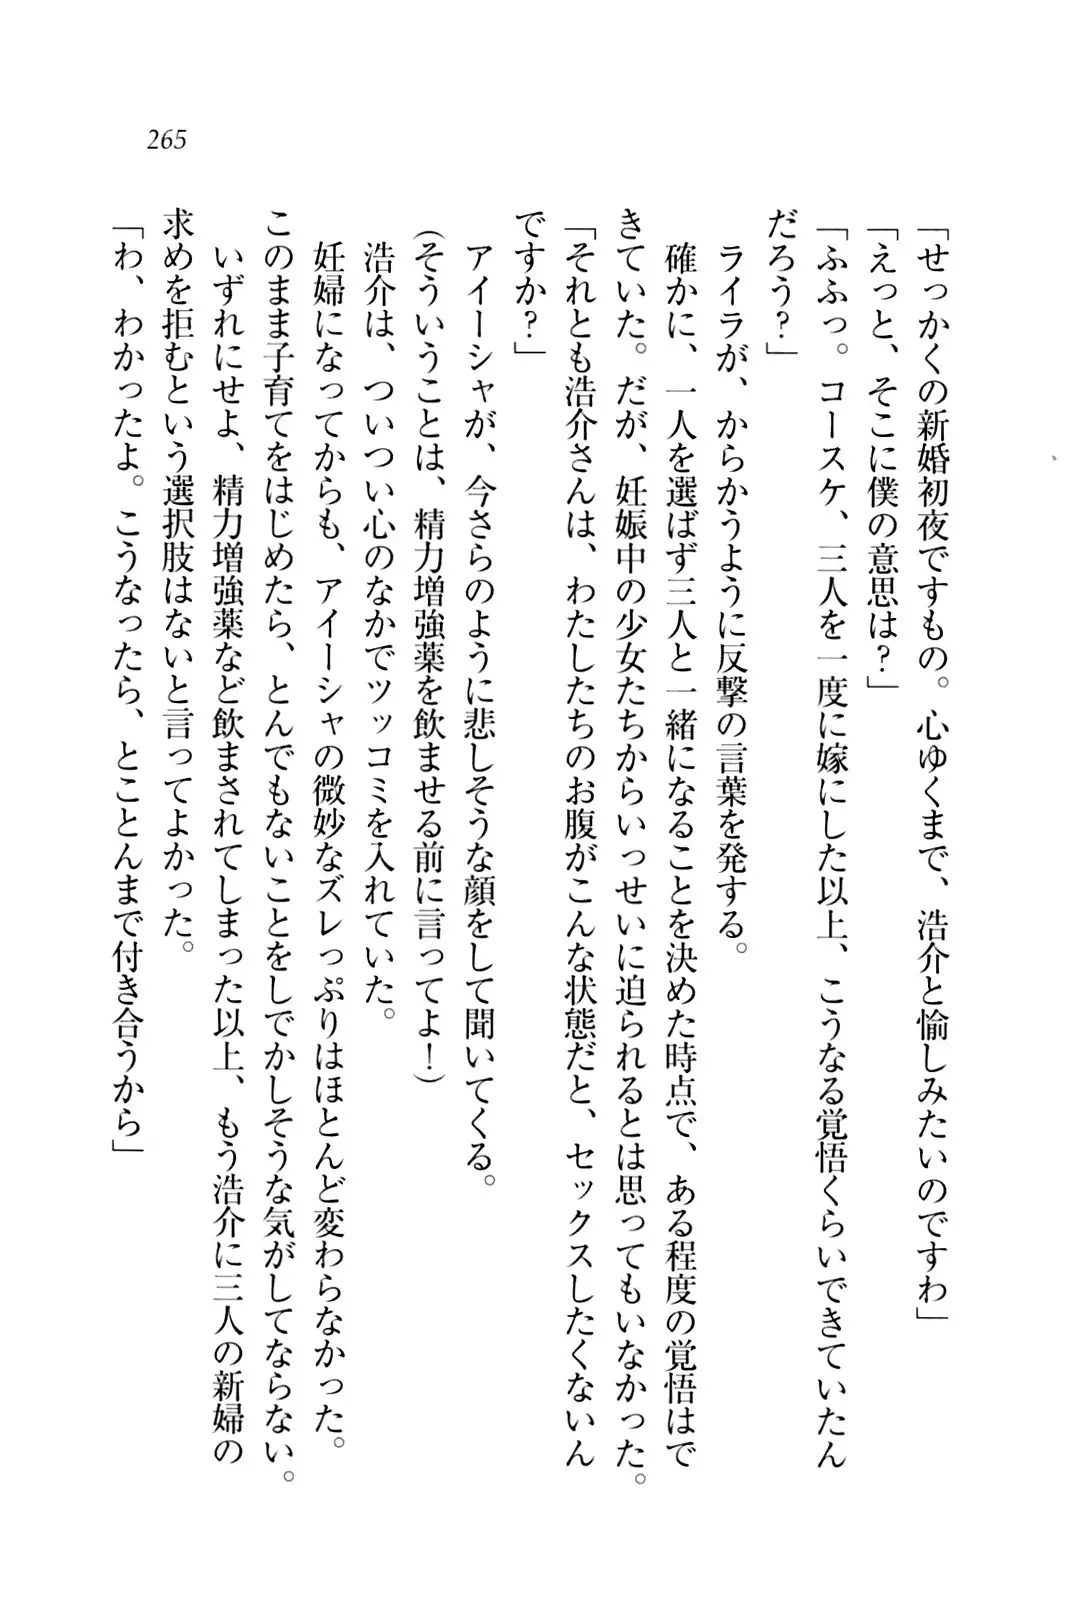 265
「せっかくの新婚初夜ですもの。心ゆくまで、浩介と愉しみたいのですわ」
「えっと、そこに僕の意思は?」
「ふふっ。コースケ、三人を一度に嫁にした以上、こうなる覚悟くらいできていたん
だろう?」
ライラが、からかうように反撃の言葉を発する。
確かに、一人を選ばず三人と一緒になることを決めた時点で、ある程度の覚悟はで
きていた。だが、妊娠中の少女たちからいっせいに迫られるとは思ってもいなかった。
「それとも浩介さんは、わたしたちのお腹がこんな状態だと、セックスしたくないん
ですか?」
アイーシャが、今さらのように悲しそうな顔をして聞いてくる。
(そういうことは、精力増強薬を飲ませる前に言ってよ!)
浩介は、ついつい心のなかでツッコミを入れていた。
妊婦になってからも、アイーシャの微妙なズレっぷりはほとんど変わらなかった。
このまま子育てをはじめたら、とんでもないことをしでかしそうな気がしてならない。
いずれにせよ、精力増強薬など飲まされてしまった以上、もう浩介に三人の新婦の
求めを拒むという選択肢はないと言ってよかった。
「わ、わかったよ。こうなったら、とことんまで付き合うから」